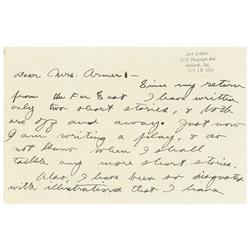 Jack London
1216 Telegraph Ave
Oakland, Cal.
Dear Mrs. Armer:-
Since my return
from the Far East I have written
only two short stories, & both
are off and away. Just now
I am writing a play, & do
not know when I shall
tackle any more short stories.
Also, I have been so disgusted
with illustrations that I have